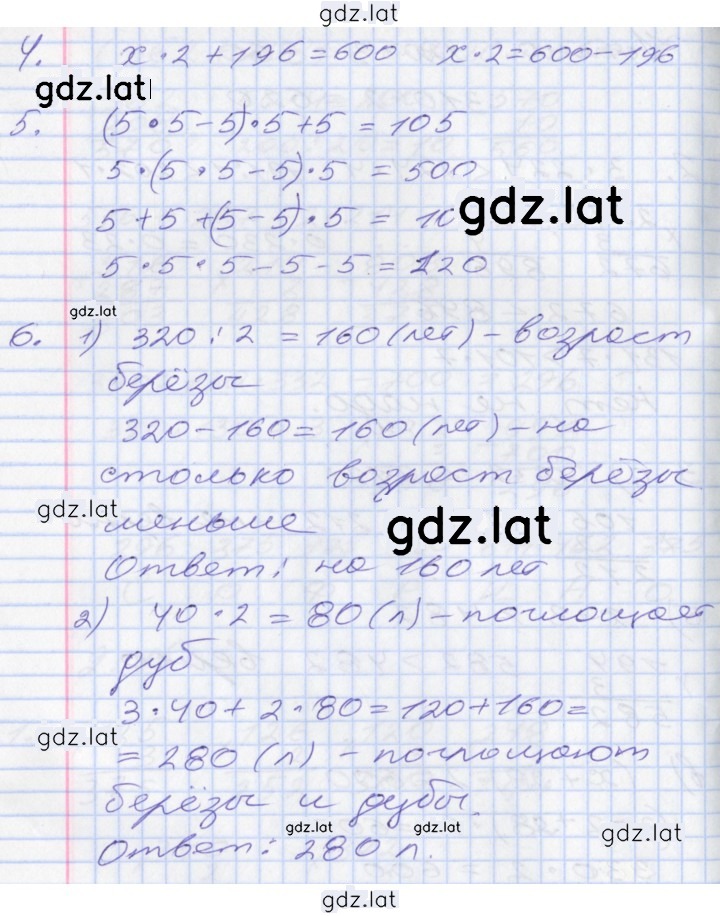 gdz.lat
4. x · 2 + 196 = 600 x · 2 = 600 - 196
gdz.lat
5. (5 · 5 - 5) · 5 + 5 = 105
5 · (5 · 5 - 5) · 5 = 500
5 + 5 + (5 - 5) · 5 = 10
gdz.lat
5 · 5 · 5 - 5 - 5 = 120
gdz.lat
6. 1) 320 : 2 = 160 (лет) - возраст
берёзы
320 - 160 = 160 (лет) - на
столько возраст берёзы
gdz.lat
меньше
gdz.lat
Ответ: на 160 лет
2) 40 · 2 = 80 (л) - поглощает
дуб
3 · 40 + 2 · 80 = 120 + 160 =
gdz.lat
= 280 (л) - поглощают
берёзы и дубы.
gdz.lat gdz.lat gdz.lat
Ответ: 280 л.
gdz.lat